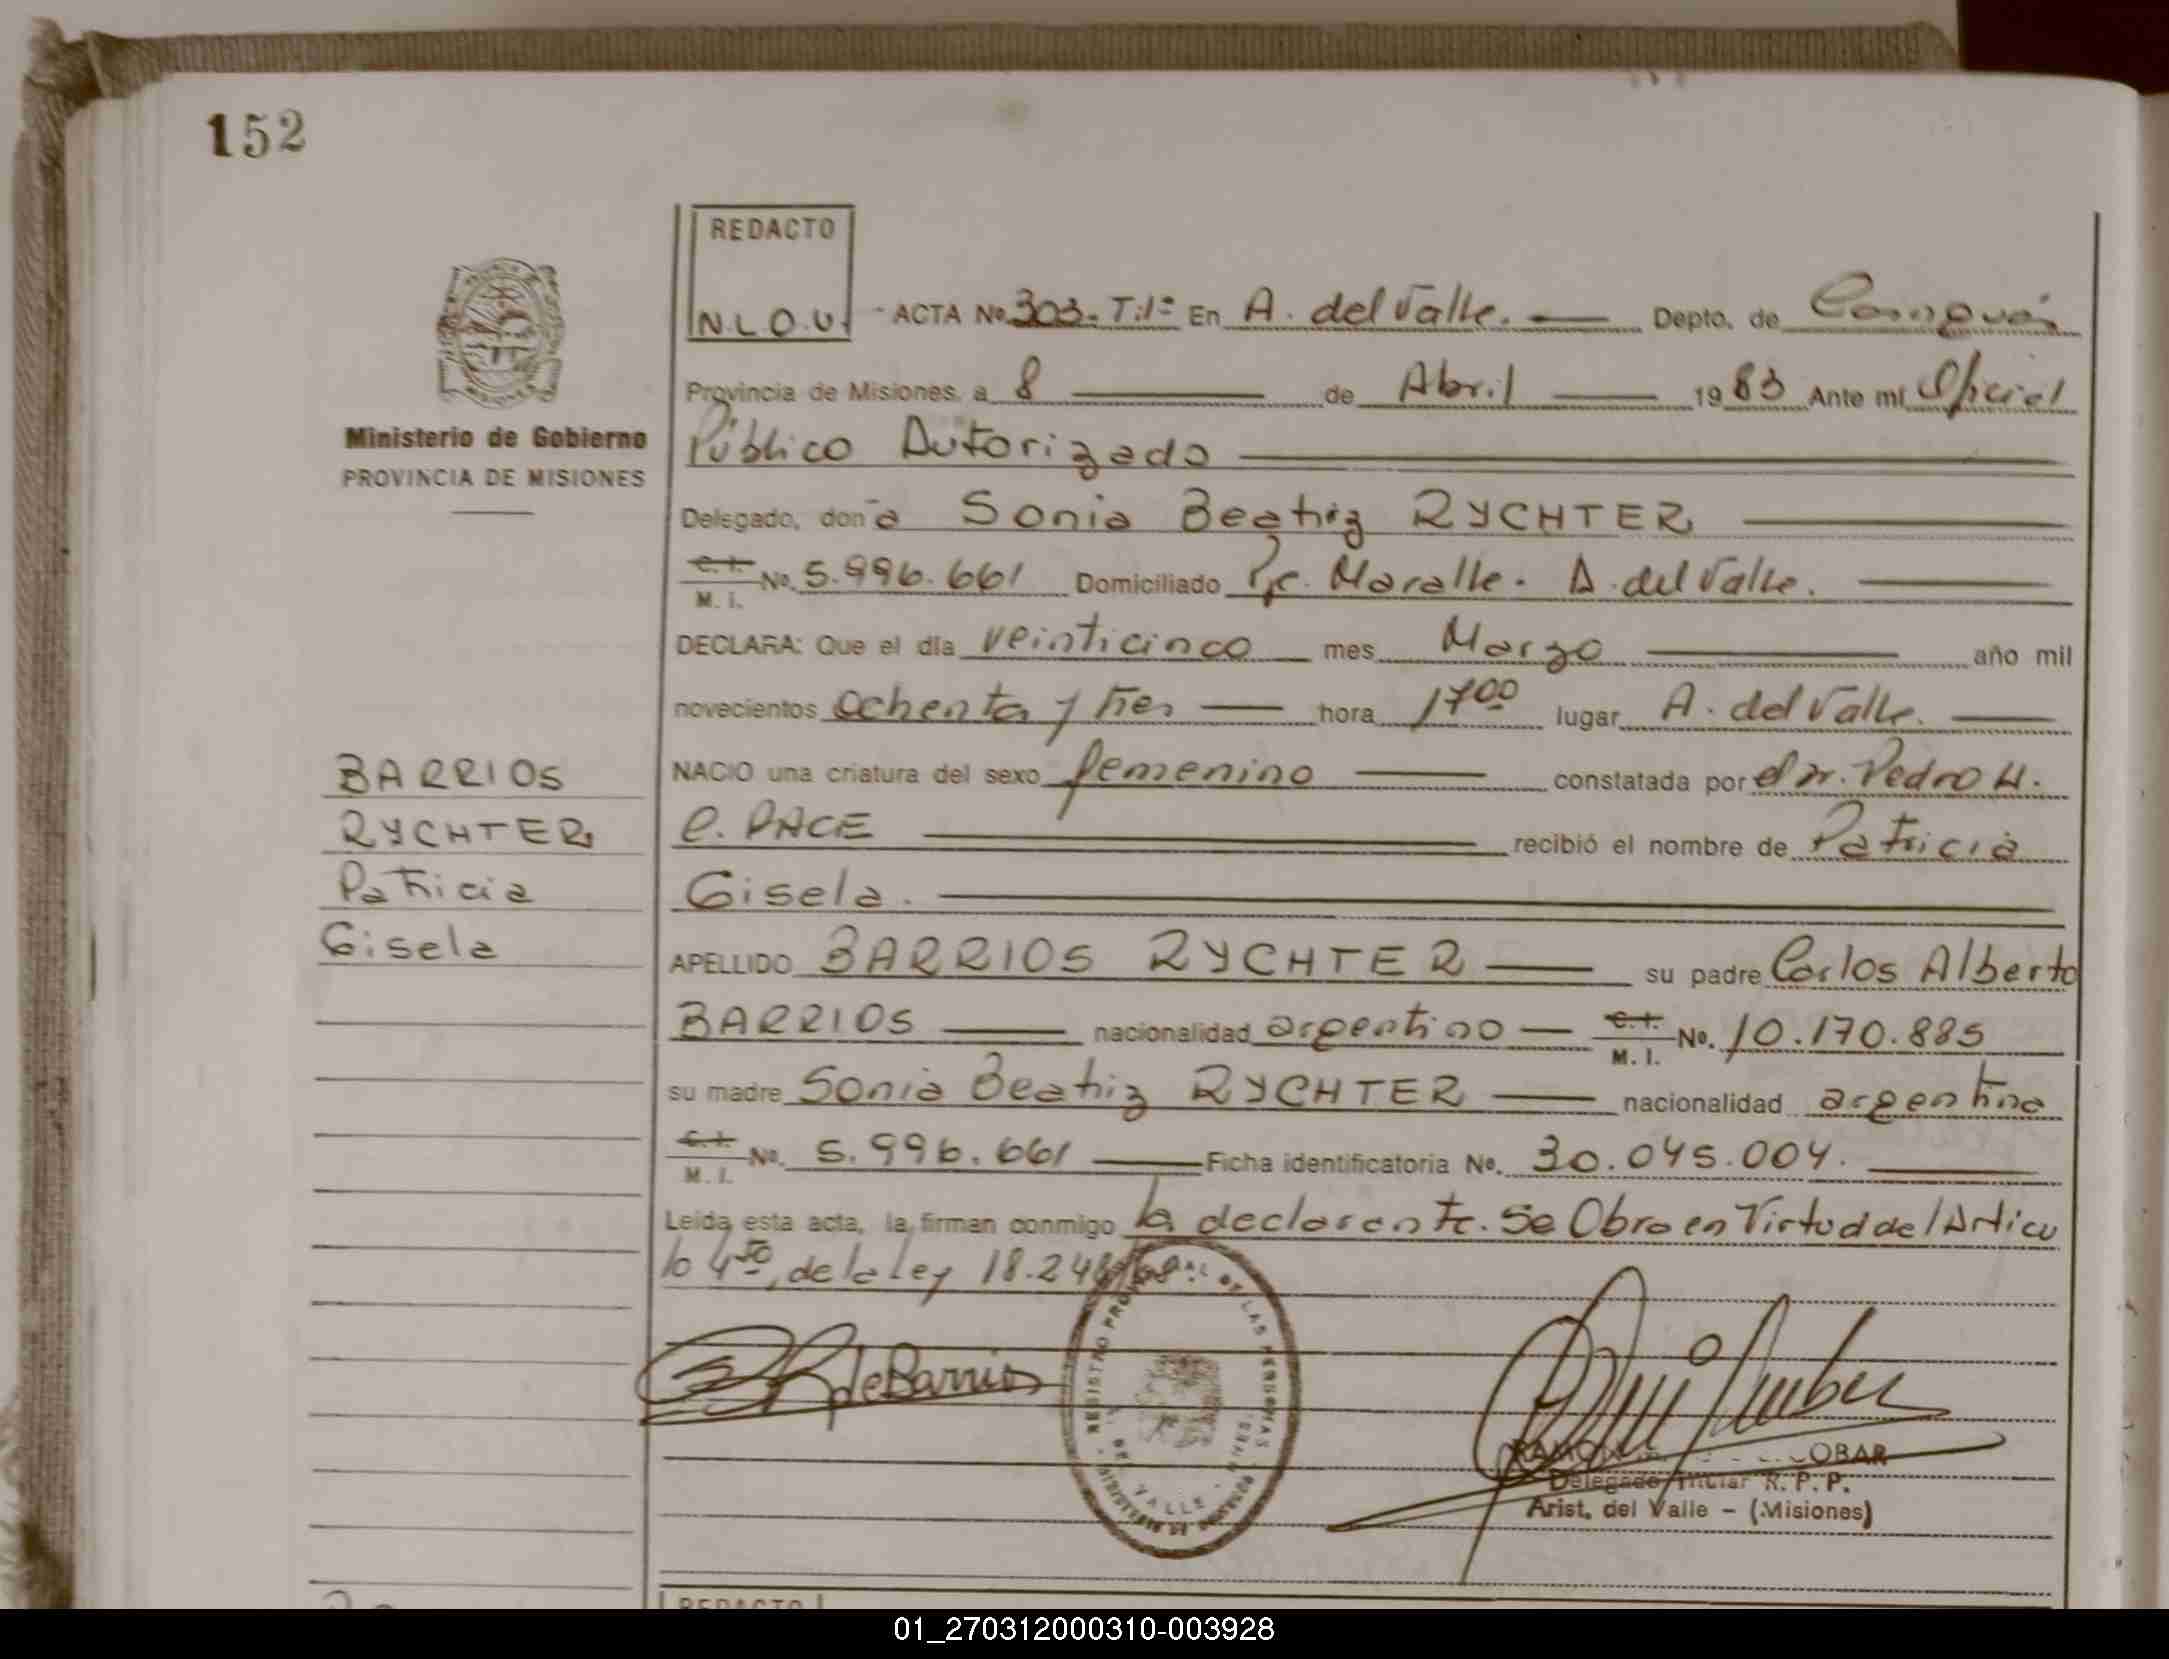 152
REDACTO
N.L.O.U.
ACTA No 303. T:1º En A. del Valle. Depto. de Cainguás
Provincia de Misiones, a 8 de Abril 1983 Ante mi Oficial
Ministerio de Gobierno
PROVINCIA DE MISIONES
Público Autorizado
Delegado, doña Sonia Beatriz RYCHTER
C. I.
M. I.
No. 5.996.661 Domiciliado Pje. A. del Valle.
DECLARA: Que el día veinticinco mes Marzo año mil
novecientos ochenta y tres hora 17 00 lugar A. del Valle.
NACIO una criatura del sexo femenino constatada por el Dr. Pedro H.
C. PACE recibió el nombre de Patricia
Gisela.
BARRIOS
RYCHTER
Patricia
Gisela
APELLIDO BARRIOS RYCHTER su padre Carlos Alberto
BARRIOS nacionalidad argentino C. I. M. I. No. 10.170.885
su madre Sonia Beatriz RYCHTER nacionalidad argentina
C. I. M. I. No. 5.996.661 Ficha identificatoria No. 30.045.004.
Leída esta acta, la firman conmigo la declarante. Se Obro en Virtud del Artícu
lo 4to, de la Ley 18.248/69.
de Barrios
REGISTRO PROVINCIAL DE LAS PERSONAS
DEL VALLE
RAMON OBAR
Delegado Titular R. P. P.
Arist. del Valle - (Misiones)
REDACTO
01_270312000310-003928